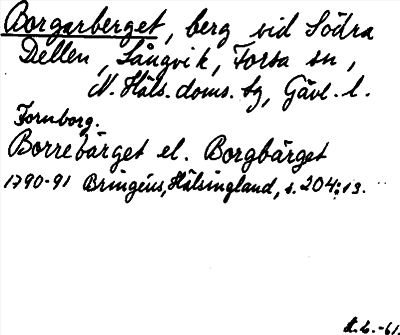 Borgarberget, berg vid Södra
Dellen, Sångvik, Forsa sn,
N. Häls. doms. bg, Gävl. l.
Fornborg.
Borrebärget el. Borgbärget
1790-91 Bringéus, Hälsingland, s. 204:13.
-61.